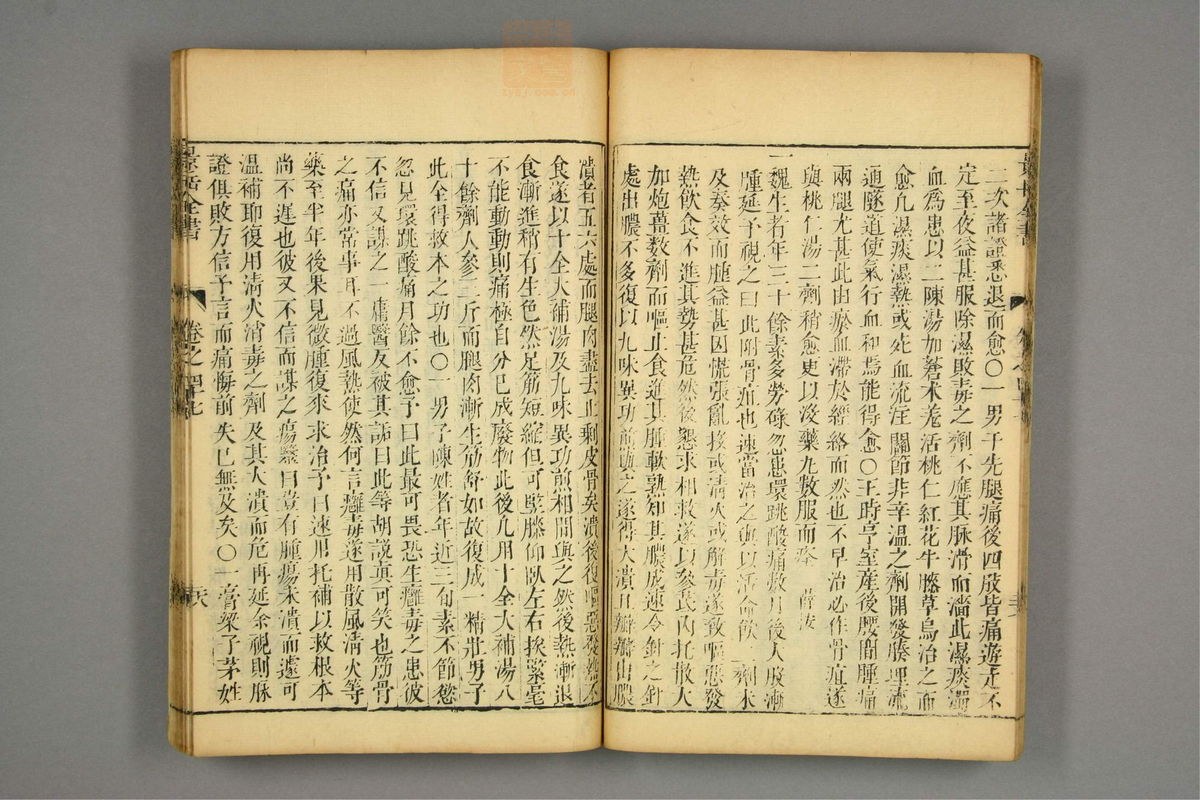 二次諸證悉退而愈〇一男子先腿痛後四肢皆痛遊走不
定至夜益甚服除濕敗毒之劑不應其脉滑而濇此濕痰濁
血爲患以二陳湯加蒼术羗活桃仁紅花牛膝草烏治之而
愈凡濕痰濕熱或死血流注關節非辛溫之劑開發腠理流
通隧道使氣行血和焉能得愈〇王時亨室産後腰間腫痛
兩腿尤甚此由瘀血滯於經絡而然也不早治必作骨疽遂
與桃仁湯二劑稍愈更以沒藥丸數服而痊 薛按
一魏生者年三十餘素多勞碌忽患環跳酸痛數月後大股漸
腫延予視之曰此附骨疽也速當治之與以活命飲二劑未
及奏效而腫益甚因慌張亂投或清火或解毒遂致嘔惡發
熱飲食不進其勢甚危然後懇求相救遂以參芪內托散大
加炮薑數劑而嘔止食進其腫軟熟知其膿成速令針之針
處出膿不多復以九味異功煎與之遂得大潰且瓣瓣出膿
潰者五六處而腿肉盡去止剩皮骨矣潰後復嘔惡發熱不
食遂以十全大補湯及九味異功煎相間與之然後熱漸退
食漸進稍有生色然足筋短縮但可竪膝仰臥左右挨緊毫
不能動動則痛極自分已成廢物此後凡用十全大補湯八
十餘劑人參三斤而腿肉漸生筋舒如故復成一精壯男子
此全得救本之功也〇一男子陳姓者年近三旬素不節慾
忽見環跳酸痛月餘不愈予曰此最可畏恐生癰毒之患彼
不信又謀之一庸醫反被其詬曰此等胡說眞可笑也筋骨
之痛亦常事耳不過風熱使然何言癰毒遂用散風清火等
藥至半年後果見微腫復來求治予曰速用托補以救根本
尚不遲也彼又不信而謀之瘍醫曰豈有腫瘍未潰而遽可
溫補耶復用清火消毒之劑及其大潰而危再延余視則脉
證俱敗方信予言而痛悔前失已無及矣〇一膏粱子茅姓
景岳全書
卷之四十七